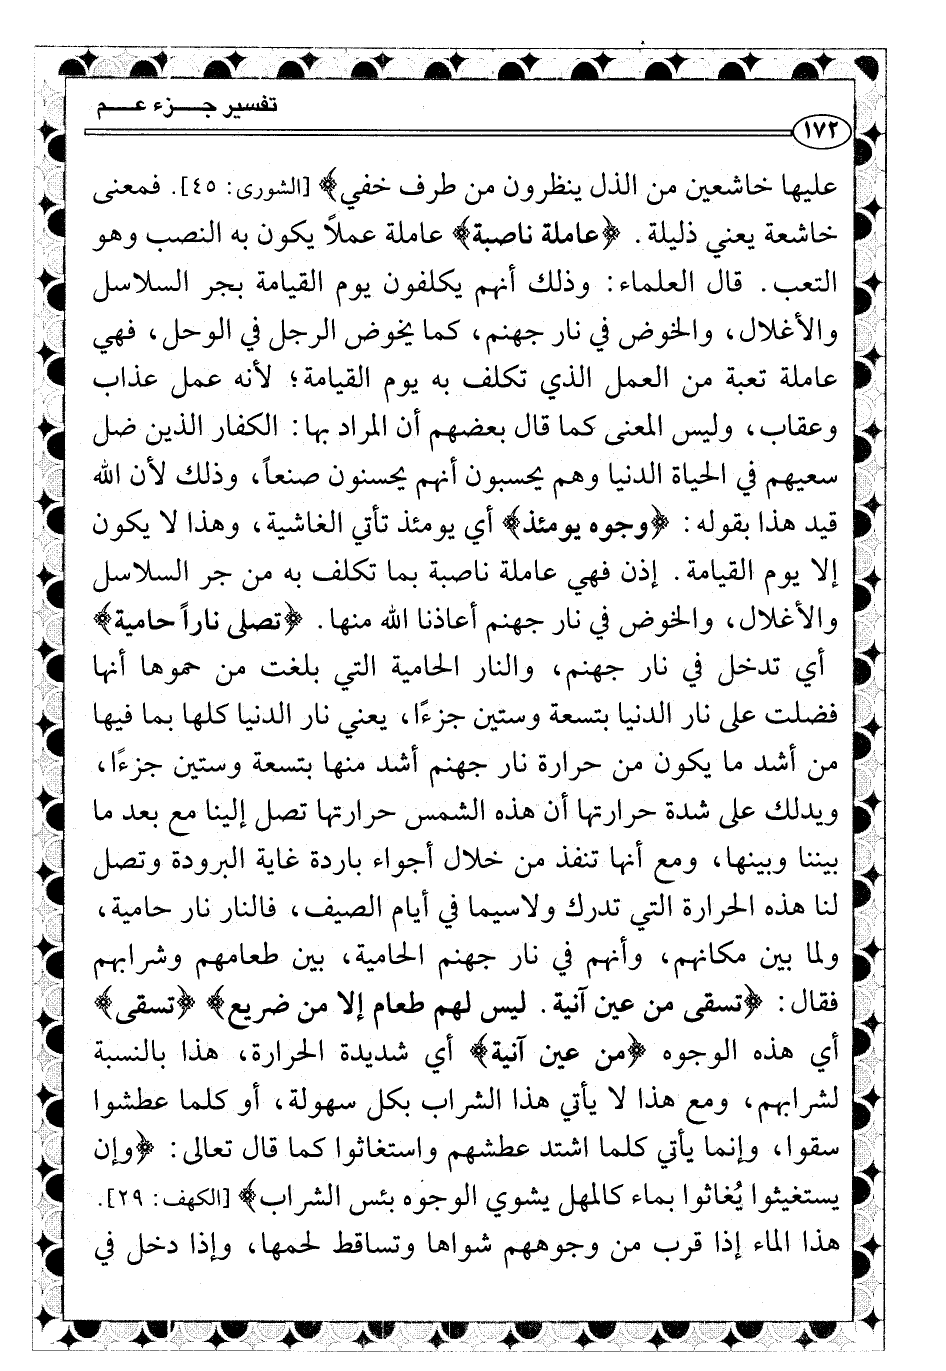 تفسير جـــزء عـــم
١٧٢
عليها خاشعين من الذل ينظرون من طرف خفي﴾ [الشورى: ٤٥]. فمعنى
خاشعة يعني ذليلة. ﴿عاملة ناصبة﴾ عاملة عملاً يكون به النصب وهو
التعب. قال العلماء: وذلك أنهم يكلفون يوم القيامة بجر السلاسل
والأغلال، والخوض في نار جهنم، كما يخوض الرجل في الوحل، فهي
عاملة تعبة من العمل الذي تكلف به يوم القيامة؛ لأنه عمل عذاب
وعقاب، وليس المعنى كما قال بعضهم أن المراد بها: الكفار الذين ضل
سعيهم في الحياة الدنيا وهم يحسبون أنهم يحسنون صنعاً، وذلك لأن الله
قيد هذا بقوله: ﴿وجوه يومئذ﴾ أي يومئذ تأتي الغاشية، وهذا لا يكون
إلا يوم القيامة. إذن فهي عاملة ناصبة بما تكلف به من جر السلاسل
والأغلال، والخوض في نار جهنم أعاذنا الله منها. ﴿تصلى ناراً حامية﴾
أي تدخل في نار جهنم، والنار الحامية التي بلغت من حموها أنها
فضلت على نار الدنيا بتسعة وستين جزءًا، يعني نار الدنيا كلها بما فيها
من أشد ما يكون من حرارة نار جهنم أشد منها بتسعة وستين جزءًا،
ويدلك على شدة حرارتها أن هذه الشمس حرارتها تصل إلينا مع بعد ما
بيننا وبينها، ومع أنها تنفذ من خلال أجواء باردة غاية البرودة وتصل
لنا هذه الحرارة التي تدرك ولاسيما في أيام الصيف، فالنار نار حامية،
ولما بين مكانهم، وأنهم في نار جهنم الحامية، بين طعامهم وشرابهم
فقال: ﴿تسقى من عين آنية. ليس لهم طعام إلا من ضريع﴾ ﴿تسقى﴾
أي هذه الوجوه ﴿من عين آنية﴾ أي شديدة الحرارة، هذا بالنسبة
لشرابهم، ومع هذا لا يأتي هذا الشراب بكل سهولة، أو كلما عطشوا
سقوا، وإنما يأتي كلما اشتد عطشهم واستغاثوا كما قال تعالى: ﴿وإن
يستغيثوا يُغاثوا بماء كالمهل يشوي الوجوه بئس الشراب﴾ [الكهف: ٢٩].
هذا الماء إذا قرب من وجوههم شواها وتساقط لحمها، وإذا دخل في